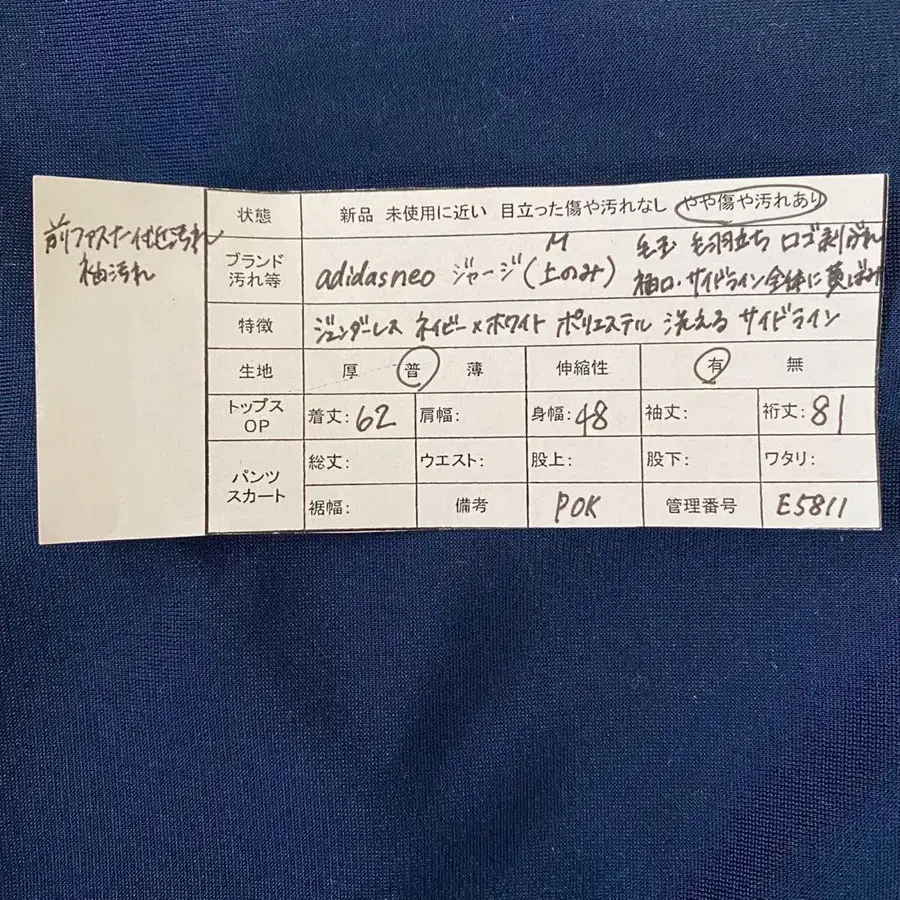 前ファスナー付近汚れ
袖汚れ
状態 新品 未使用に近い 目立った傷や汚れなし やや傷や汚れあり
ブランド 汚れ等 adidasneo ジャージ(上のみ) M 毛玉 毛羽立ち ロゴ剥がれ
袖口・サイドライン全体に黄ばみ
特徴 ジェンダーレス ネイビー×ホワイト ポリエステル 洗える サイドライン
生地 厚 普 薄 伸縮性 有 無
トップス OP 着丈:62 肩幅: 身幅:48 袖丈: 裄丈:81
パンツ スカート 総丈: ウエスト: 股上: 股下: ワタリ:
裾幅: 備考 POK 管理番号 E5811